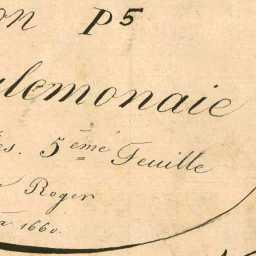 on P5
ulemonaie
es. 5ème Feuille
Roger
a 1660.